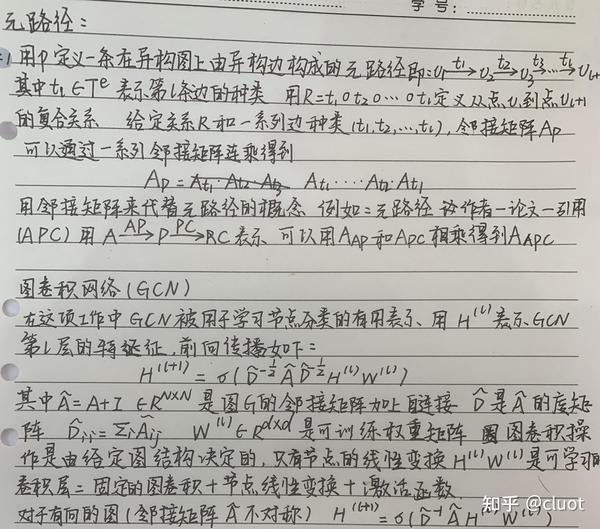 学号:
元路径:
用P定义一条在异构图上由异构边构成的元路径即: υ₁ —t₁→ υ₂ —t₂→ υ₃ —t₃→ ... —tₗ→ υₗ₊
其中tₗ∈Tᵉ表示第l条边的种类 用R=t₁∘t₂∘…∘tₗ定义从点υ₁到点υₗ₊₁
的复合关系 给定关系R和一系列边种类(t₁,t₂,...,tₗ),邻接矩阵Ap
可以通过一系列邻接矩阵连乘得到
Ap = At₁·At₂·At₃ Atₗ····At₂·At₁
用邻接矩阵来代替元路径的概念 例如:元路径 作者一论文一引用
(APC) 用 A —AP→ P —PC→ C 表示 可以用A_AP和A_PC相乘得到A_APC
图卷积网络(GCN)
在这项工作中GCN被用于学习节点分类的有用表示、用H⁽ˡ⁾表示GCN
第l层的特征,前向传播如下:
H⁽ˡ⁺¹⁾ = σ(D̂^-½ Â D̂^-½ H⁽ˡ⁾W⁽ˡ⁾)
其中Â=A+I ∈R^N×N 是图G的邻接矩阵加上自连接 D̂是Â的度矩
阵 D̂ᵢᵢ=ΣᵢÂᵢⱼ W⁽ˡ⁾∈R^d×d是可训练权重矩阵 图卷积操
作是由给定图结构决定的,只有节点的线性变换H⁽ˡ⁾W⁽ˡ⁾是可学习的
卷积层=固定的图卷积+节点线性变换+激活函数.
对于有向的图(邻接矩阵Â不对称) H⁽ˡ⁺¹⁾=σ(D̂⁻¹ÂH⁽ˡ⁾W⁽ˡ⁾)
知乎 @cluot